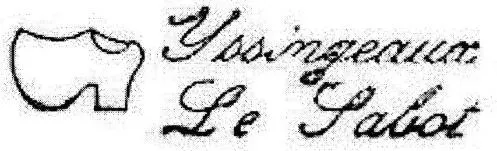 Yssingeaux
Le Sabot